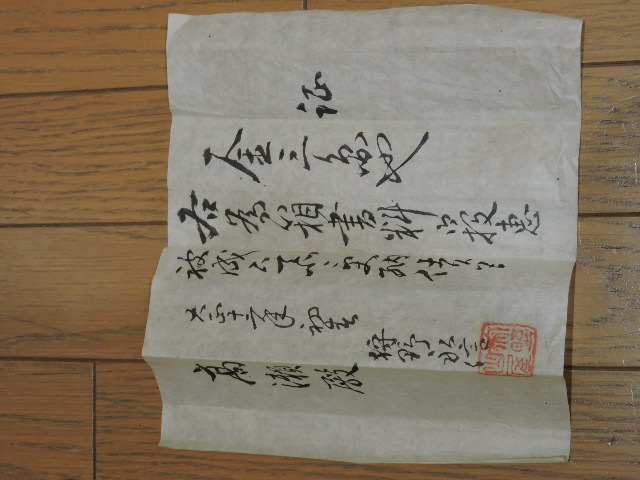 証
一金三円也
右為箱書料御投恵
被成下正に受納仕候也
大正十二年初春
狩野永信
高瀬殿